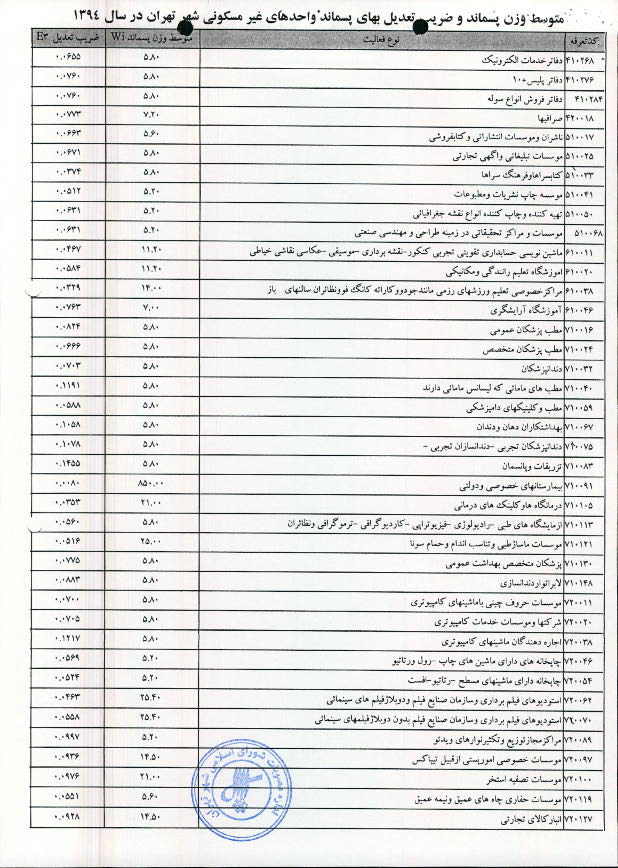 متوسط وزن پسماند و ضریب تعدیل بهای پسماند واحدهای غیر مسکونی شهر تهران در سال ۱۳۹۴
کدتعرفه نوع فعالیت متوسط وزن پسماند Wi ضریب تعدیل E۳
۴۱۰۲۶۸ دفاتر خدمات الکترونیک ۵.۸۰ ۰.۰۶۵۵
۴۱۰۲۷۶ دفاتر پلیس+۱۰ ۵.۸۰ ۰.۰۷۶۰
۴۱۰۲۸۴ دفاتر فروش انواع سوله ۵.۸۰ ۰.۰۷۶۰
۴۲۰۰۱۸ صرافیها ۷.۲۰ ۰.۰۷۷۳
۵۱۰۰۱۷ ناشران وموسسات انتشاراتی وکتابفروشی ۵.۶۰ ۰.۰۶۶۳
۵۱۰۰۲۵ موسسات تبلیغاتی واگهی تجارتی ۵.۸۰ ۰.۰۶۷۱
۵۱۰۰۳۳ کتابسراهاوفرهنگ سراها ۵.۸۰ ۰.۰۳۷۴
۵۱۰۰۴۱ موسسه چاپ نشریات ومطبوعات ۵.۲۰ ۰.۰۵۱۲
۵۱۰۰۵۰ تهیه کننده وچاپ کننده انواع نقشه جغرافیائی ۵.۲۰ ۰.۰۶۳۱
۵۱۰۰۶۸ موسسات و مراکز تحقیقاتی در زمینه طراحی و مهندسی صنعتی ۵.۲۰ ۰.۰۶۳۱
۶۱۰۰۱۱ ماشین نویسی حسابداری تقویتی تجربی کنکور-نقشه برداری -موسیقی -عکاسی نقاشی خیاطی ۱۱.۲۰ ۰.۰۴۶۷
۶۱۰۰۲۰ اموزشگاه تعلیم رانندگی ومکانیکی ۱۱.۲۰ ۰.۰۵۸۴
۶۱۰۰۳۸ مراکزخصوصی تعلیم ورزشهای رزمی مانندجودووکاراته کانگ فوونظائران سالنهای باز ۱۴.۰۰ ۰.۰۳۲۹
۶۱۰۰۴۶ آموزشگاه آرایشگری ۷.۰۰ ۰.۰۷۶۳
۷۱۰۰۱۶ مطب پزشکان عمومی ۵.۸۰ ۰.۰۸۲۴
۷۱۰۰۲۴ مطب پزشکان متخصص ۵.۸۰ ۰.۰۶۶۶
۷۱۰۰۳۲ دندانپزشکان ۵.۸۰ ۰.۰۷۰۳
۷۱۰۰۴۰ مطب های مامائی که لیسانس مامائی دارند ۵.۸۰ ۰.۱۱۹۱
۷۱۰۰۵۹ مطب وکلینیکهای دامپزشکی ۵.۸۰ ۰.۰۵۸۸
۷۱۰۰۶۷ بهداشتکاران دهان ودندان ۵.۸۰ ۰.۱۰۵۸
۷۱۰۰۷۵ دندانپزشکان تجربی -دندانسازان تجربی - ۵.۸۰ ۰.۱۰۷۸
۷۱۰۰۸۳ تزریقات وپانسمان ۵.۸۰ ۰.۱۴۵۵
۷۱۰۰۹۱ بیمارستانهای خصوصی ودولتی ۸۵۰.۰۰ ۰.۰۰۸۰
۷۱۰۱۰۵ درمانگاه هاوکلینک های درمانی ۲۱.۰۰ ۰.۰۳۵۳
۷۱۰۱۱۳ ازمایشگاه های طبی -رادیولوژی -فیزیوتراپی -کاردیوگرافی -ترموگرافی ونظائران ۵.۸۰ ۰.۰۵۶۰
۷۱۰۱۲۱ موسسات ماساژطبی وتناسب اندام وحمام سونا ۲۵.۰۰ ۰.۰۵۱۶
۷۱۰۱۳۰ پزشکان متخصص بهداشت عمومی ۵.۸۰ ۰.۰۷۷۵
۷۱۰۱۴۸ لابراتواردندانسازی ۵.۸۰ ۰.۰۸۸۳
۷۲۰۰۱۱ موسسات حروف چینی باماشینهای کامپیوتری ۵.۸۰ ۰.۰۷۰۰
۷۲۰۰۲۰ شرکتها وموسسات خدمات کامپیوتری ۵.۸۰ ۰.۰۷۰۵
۷۲۰۰۳۸ اجاره دهندگان ماشینهای کامپیوتری ۵.۸۰ ۰.۱۲۱۷
۷۲۰۰۴۶ چاپخانه های دارای ماشین های چاپ -رول ورتاتیو ۵.۲۰ ۰.۰۵۶۹
۷۲۰۰۵۴ چاپخانه دارای ماشینهای مسطح -رتاتیو-افست ۵.۲۰ ۰.۰۵۲۴
۷۲۰۰۶۲ استودیوهای فیلم برداری وسازمان صنایع فیلم ودوبلاژفیلم های سینمائی ۲۵.۴۰ ۰.۰۴۶۳
۷۲۰۰۷۰ استودیوهای فیلم برداری وسازمان صنایع فیلم بدون دوبلاژفیلمهای سینمائی ۲۵.۴۰ ۰.۰۵۵۸
۷۲۰۰۸۹ مراکزمجازتوزیع وتکثیرنوارهای ویدئو ۵.۲۰ ۰.۰۹۹۷
۷۲۰۰۹۷ موسسات خصوصی امورپستی ازقبیل تیپاکس ۱۴.۵۰ ۰.۰۹۳۶
۷۲۰۱۰۰ موسسات تصفیه استخر ۲۱.۰۰ ۰.۰۹۷۶
۷۲۰۱۱۹ موسسات حفاری چاه های عمیق ونیمه عمیق ۵.۶۰ ۰.۰۵۵۱
۷۲۰۱۲۷ انبارکالای تجارتی ۱۴.۵۰ ۰.۰۹۲۸
اداره مصوبات شورای اسلامی شهر تهران